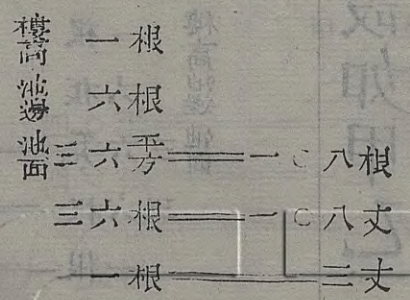 樓高 一根
池邊 六根
池面 三六平方══一〇八根
三六根══一〇八丈
一根══三丈